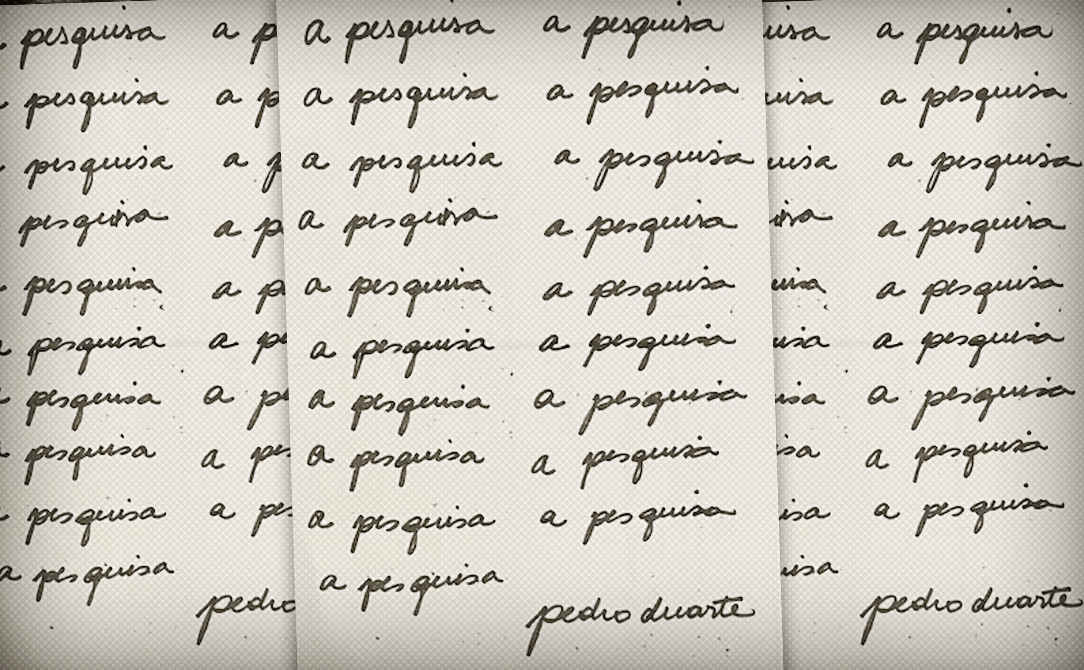 pesquisa a p
pesquisa a p
pesquisa a p
pesquisa a p
pesquisa a p
a pesquisa a pe
pesquisa a pe
pesquisa a pes
pesquisa a pes
a pesquisa
pedro
a pesquisa a pesquisa
a pesquisa a pesquisa
a pesquisa a pesquisa
a pesquisa a pesquisa
a pesquisa a pesquisa
a pesquisa a pesquisa
a pesquisa a pesquisa
a pesquisa a pesquisa
a pesquisa a pesquisa
a pesquisa
pedro duarte
uisa a pesquisa
uisa a pesquisa
uisa a pesquisa
isa a pesquisa
uisa a pesquisa
isa a pesquisa
isa a pesquisa
sa a pesquisa
isa a pesquisa
uisa
pedro duarte